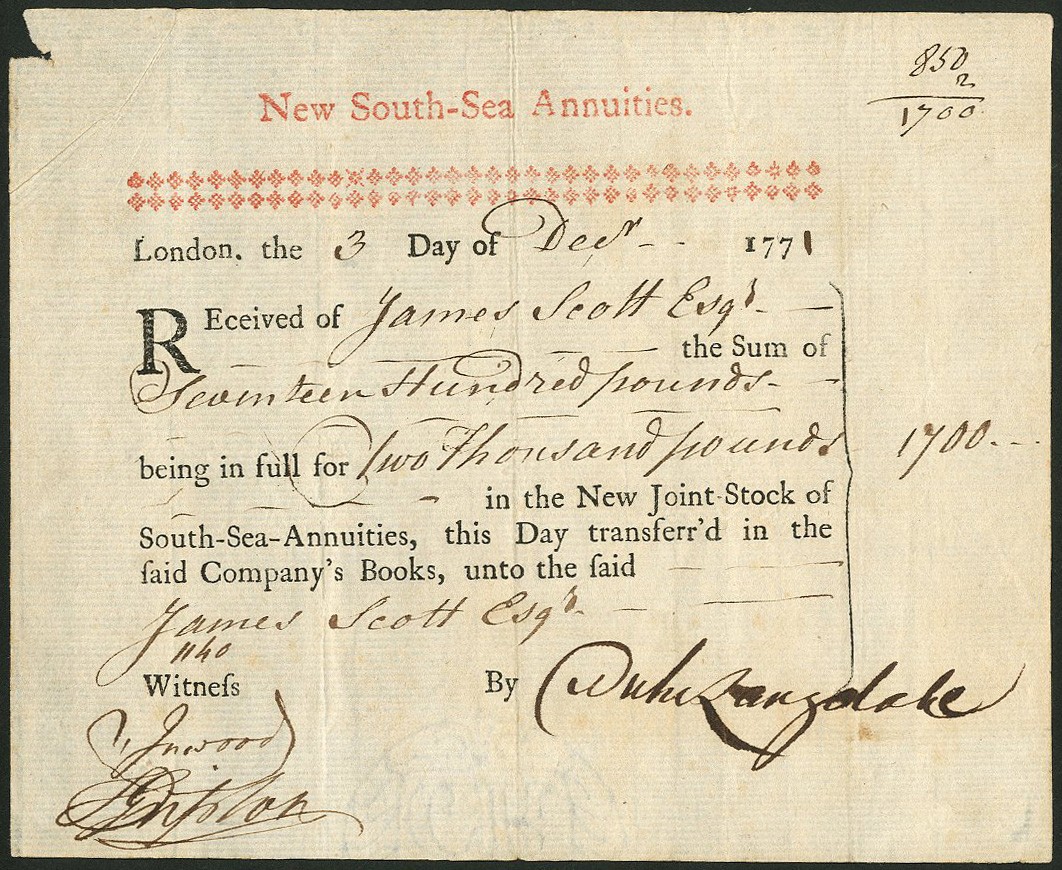 850
2
1700
New South-Sea Annuities.
London. the 3 Day of Decr 1771
REceived of James Scott Esqr.
the Sum of
Seventeen Hundred pounds
being in full for Two Thousand pounds 1700
in the New Joint-Stock of
South-Sea-Annuities, this Day transferr'd in the
ſaid Company's Books, unto the ſaid
James Scott Esqr.
1140
Witneſs By Duke Langdale
Inwood